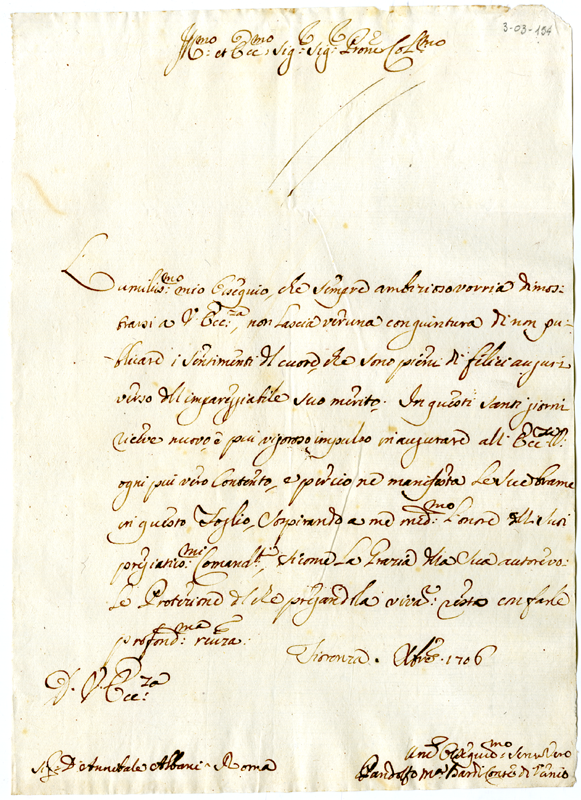 3-03-194
Ill.mo et Ecc.mo Sig.r Sig.r P'rone Col.mo
L'umiliss.mo mio Ossequio, che sempre ambizioso vorria dimos-
trarsi a V. Ecc.za, non lascia veruna congiuntura di non pu-
blicare i sentimenti del cuore, che sono pieni di felici auguri
verso dell'impareggiabile suo merito. In questi santi giorni
riceve nuovo, e più vigoroso impulso in augurare all' Ecc.za V.
ogni più vero Contento, e perciò ne manifesta le sue brame
in questo Foglio, sospirando a me med.mo l'onore de suoi
pregiatis.mi Comand.ti, sicome la Grazia della Sua autorevo-
le Protezione del che pregandola vivam.te resto con farle
profond.ma reuza.
Fiorenza. Xbre 1706
D. V. Ecc.za
Sig. D. Annibale Albani - Roma
Um.e Ossequios.mo Servit. Vero
Pandolfo M.a Bardi Conte di Vernio